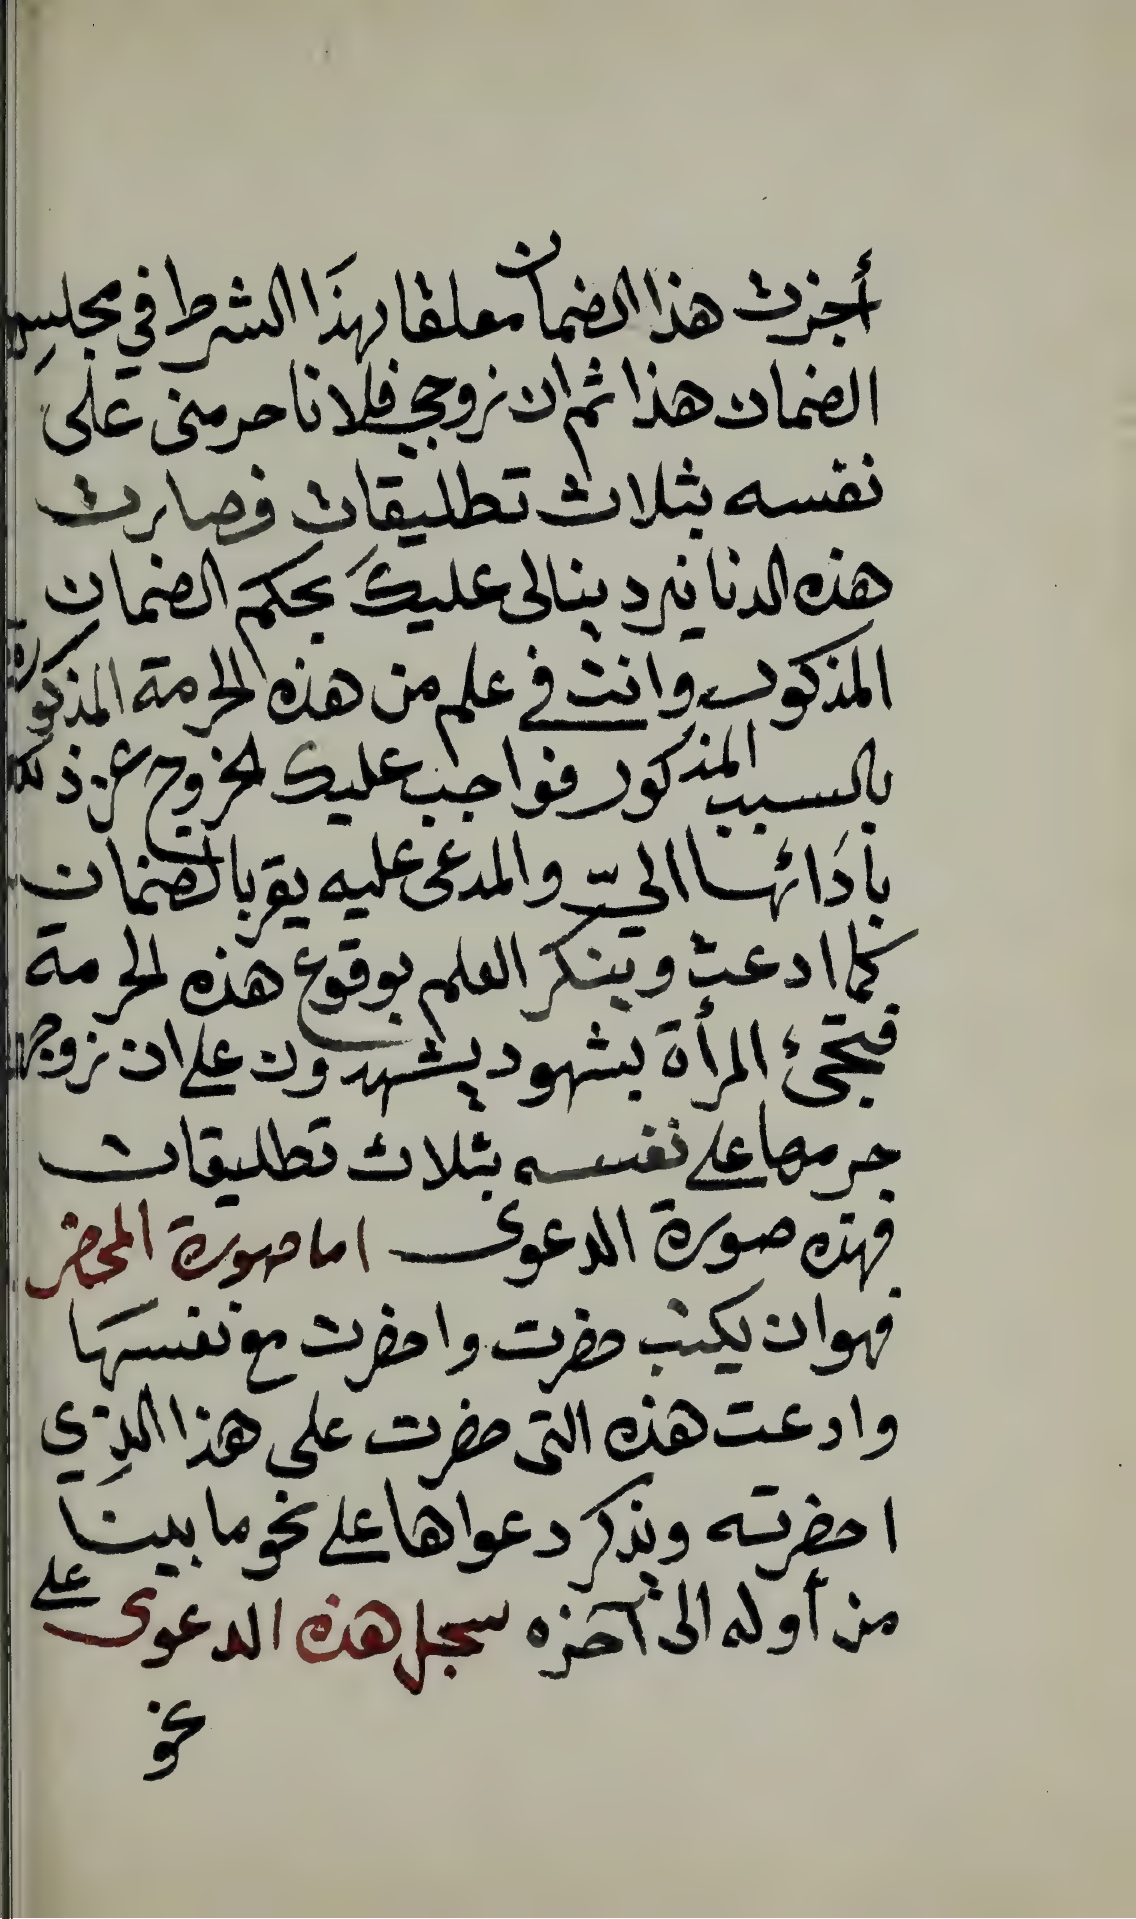 أجزت هذا الضمان معلقا بهذا الشرط في مجلس
الضمان هذا ثم ان زوجي فلانا حرمنى على
نفسه بثلاث تطليقات فصارت
هذه الدنانير دينا لى عليك بحكم الضمان
المذكور وانت في علم من هذه الحرمة المذكورة
بالسبب المذكور فواجب عليك الخروج عن ذلك
بأدائها اليّ والمدعى عليه يقر بالضمان
كما ادعت وينكر العلم بوقوع هذه الحرمة
فتجئ المرأة بشهود يشهدون على ان زوجها
حرمها على نفسه بثلاث تطليقات
فهذه صورة الدعوى اما صورة المحضر
فهو ان يكتب حضرت واحضرت مع نفسها
وادعت هذه التى حضرت على هذا الذي
احضرته ويذكر دعواها على نحو ما بينا
من أوله الى آخره سجل هذه الدعوى على
نحو